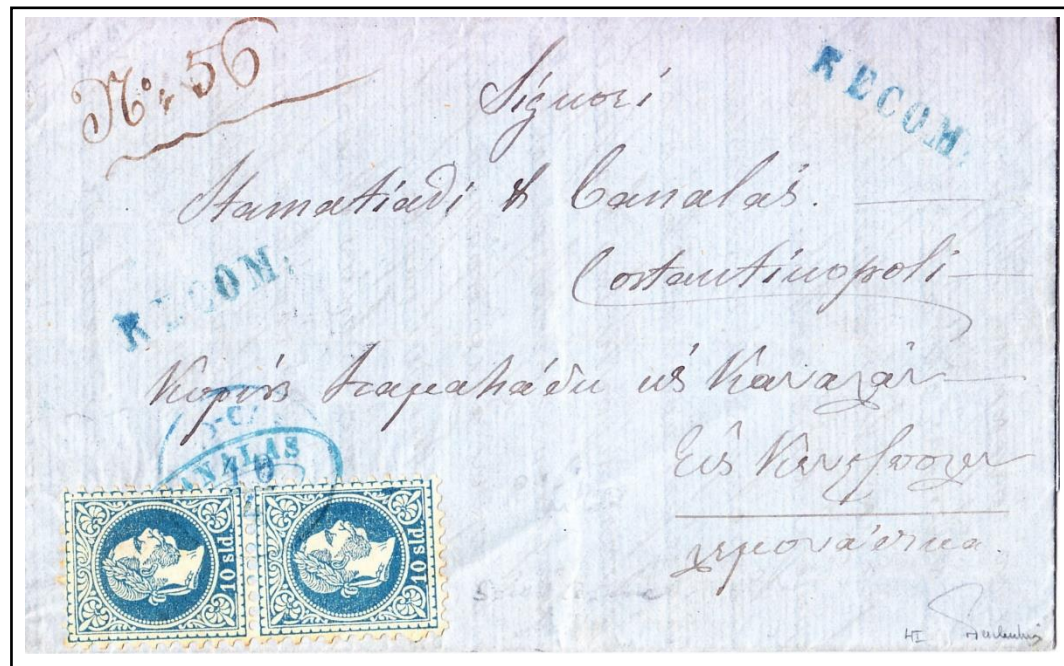 No. 56
RECOM.
Signori
Stamatiadi & Canalas.
Costantinopoli
RECOM.
Κυρίους Σταματιάδη κ Καναλάν
Εἰς Κων/πολιν
10 sld.
10 sld.